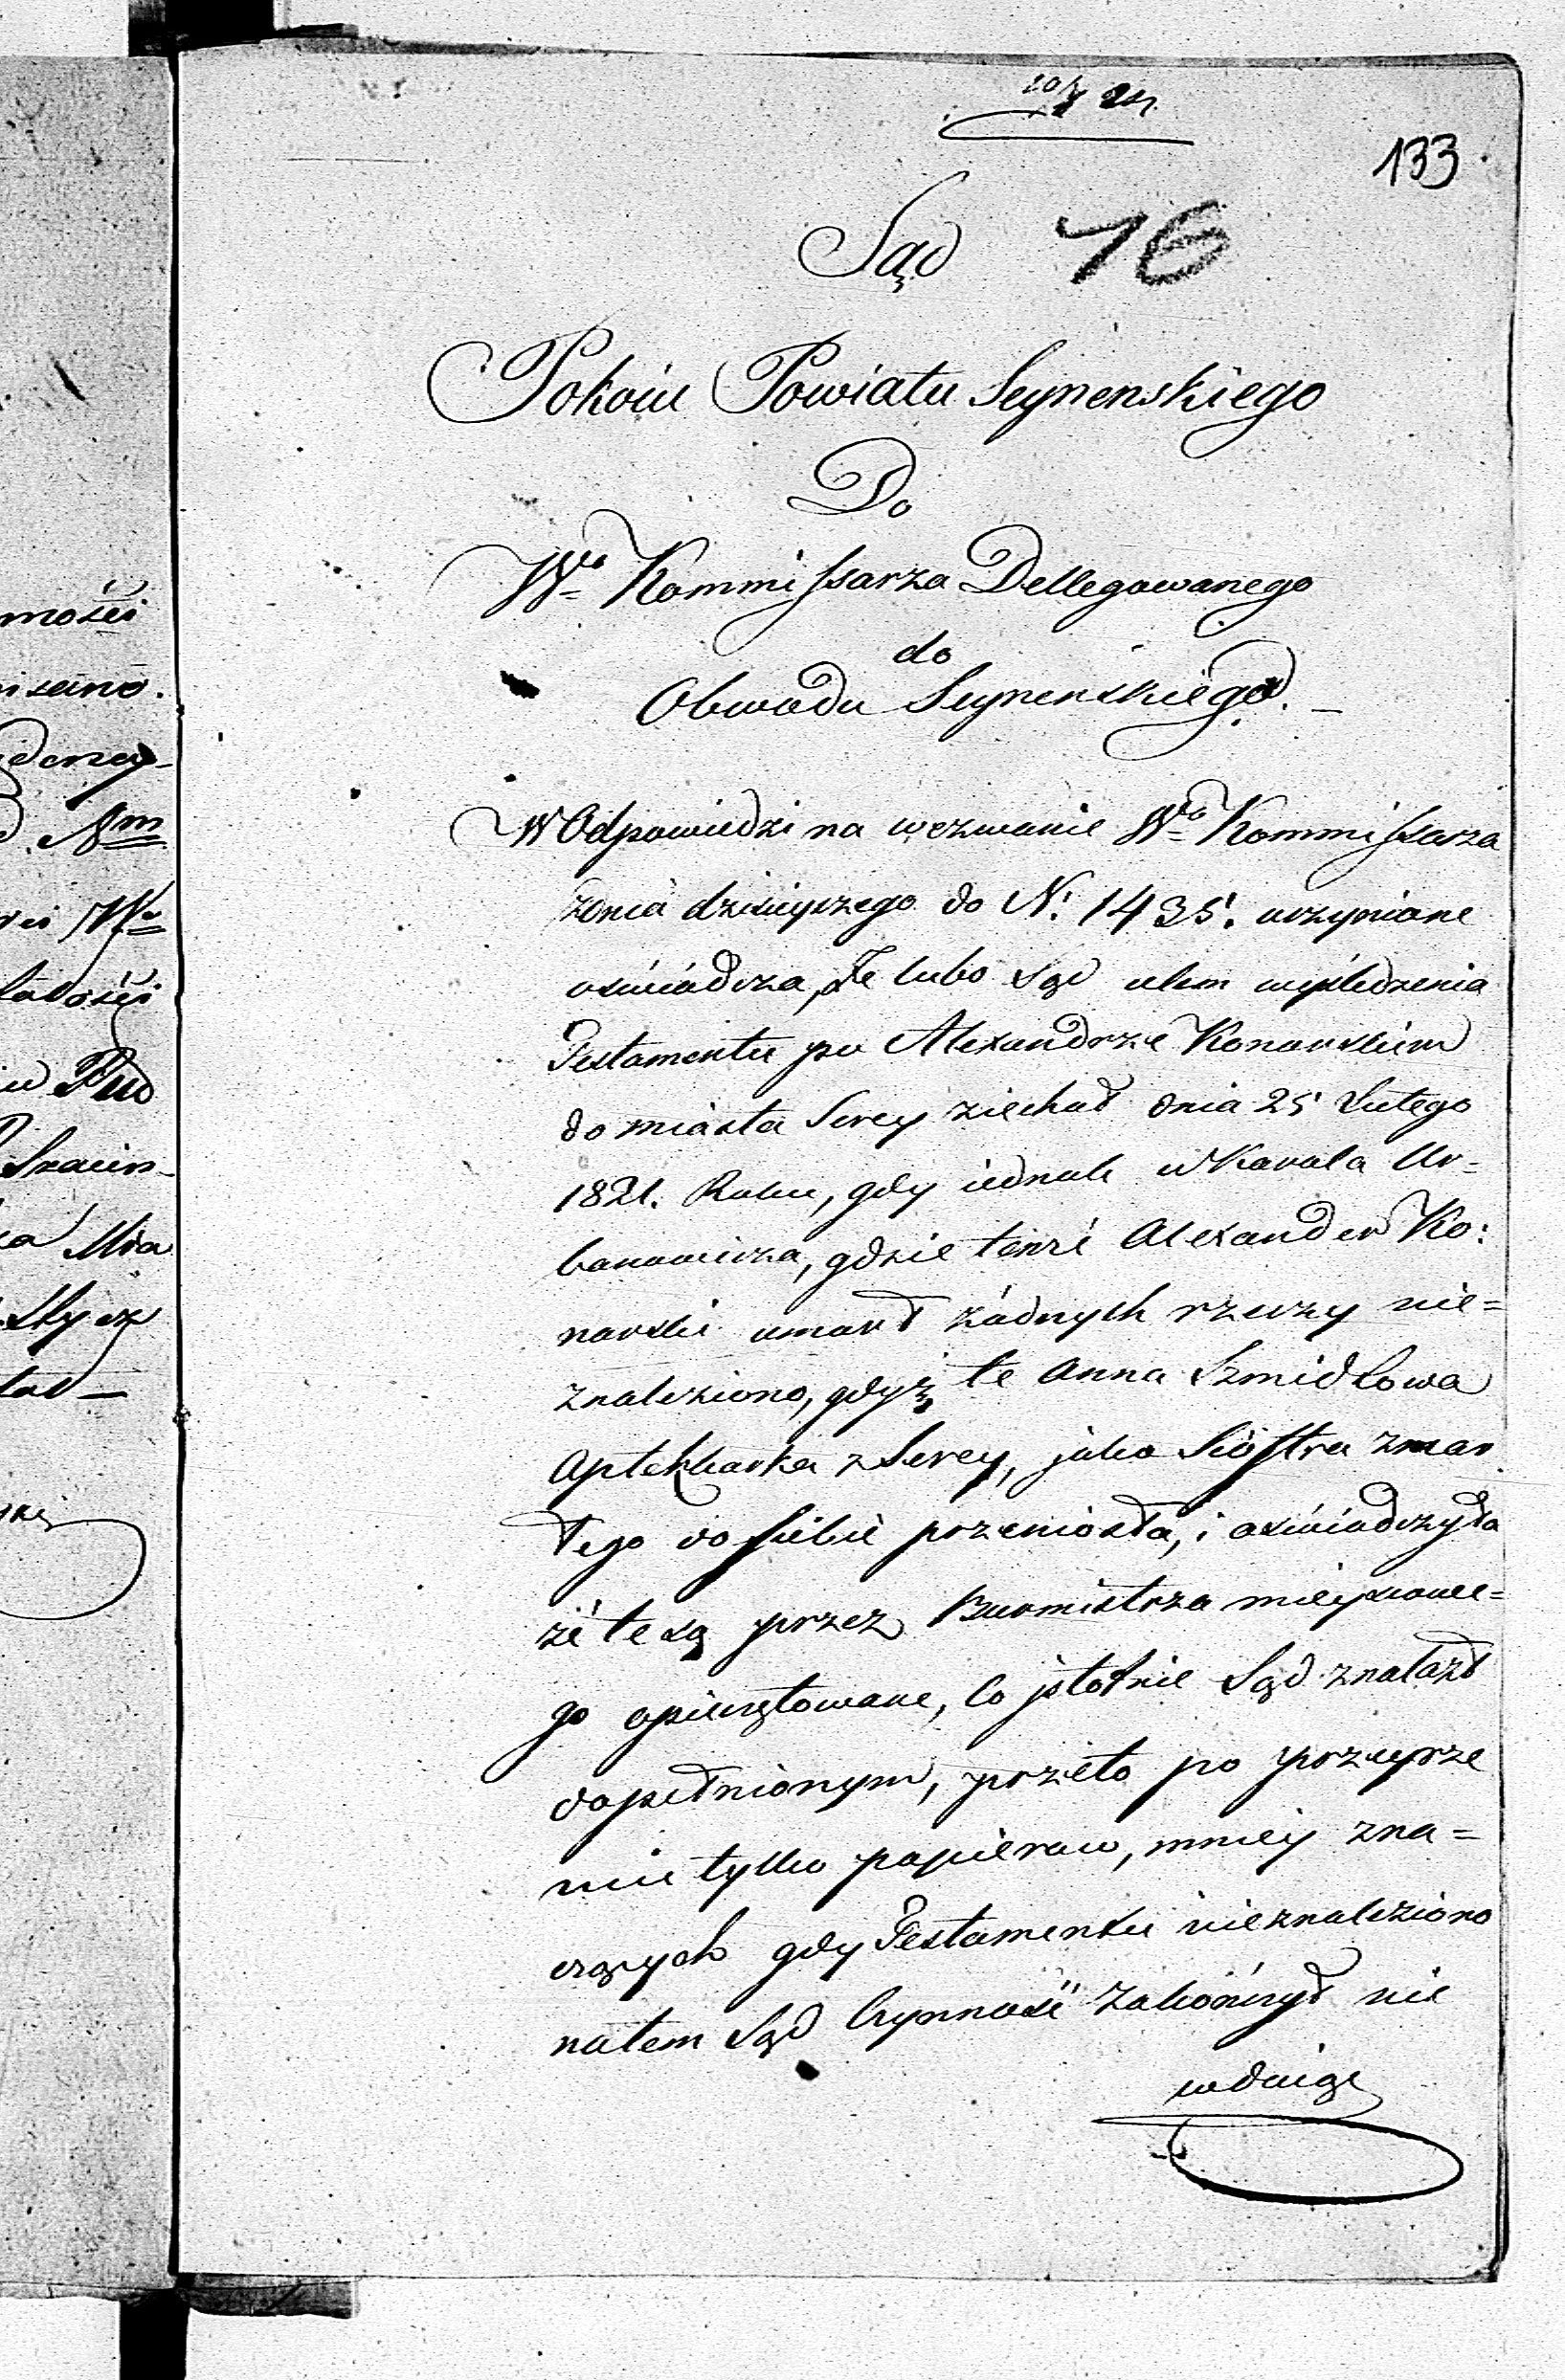 133.
Sąd 16
Pokoiu Powiatu Seynenskiego
Do
Wo Kommissarza Dellegowanego
do
Obwodu Seynenskiego. –
W Odpowiedzi na wezwanie Wo Kommissarza
zdnia dzisieyszego do N: 1435. uczynione
oświadcza, Że lubo Sąd celem wyśledzenia
Testamentu po Alexandrze Konarskim
do miasta Serey ziechał dnia 25 Lutego
1821. Roku, gdy iednak u Karola Ur=
banowicza, gdzie tenże Alexander Ko:
narski umarł żadnych rzeczy nie=
znaleziono, gdyż te Anna Szmidtowa
Aptekkarka z Serey, jako Siostra zmar
łego do siebie przeniosła, i oświadczyła
że te są przez Burmistrza mieyscowe=
go opieczętowane, Co jstotnie Sąd znalazł
dopełnionym, przeto po przeyrze
niu tylko papierow, mniey zna=
czących gdy Testamentu nieznaleziono
natem Sąd Czynność zakończył nie
wdaiąc
mości
Nm
Wo